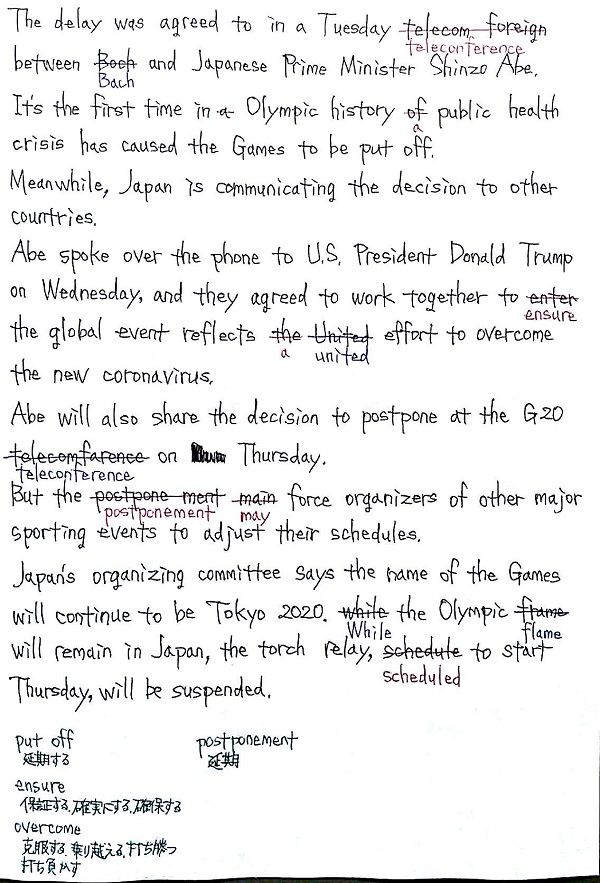 The delay was agreed to in a Tuesday telecom foreign
teleconference
between Boch and Japanese Prime Minister Shinzo Abe.
Bach
It's the first time in a Olympic history of public health
a
crisis has caused the Games to be put off.
Meanwhile, Japan is communicating the decision to other
countries.
Abe spoke over the phone to U.S. President Donald Trump
on Wednesday, and they agreed to work together to enter
ensure
the global event reflects the United effort to overcome
a united
the new coronavirus.
Abe will also share the decision to postpone at the G20
telecomfarence on Thursday.
teleconference
But the postpone ment main force organizers of other major
postponement may
sporting events to adjust their schedules.
Japan's organizing committee says the name of the Games
will continue to be Tokyo 2020. while the Olympic frame
While flame
will remain in Japan, the torch relay, schedule to start
scheduled
Thursday, will be suspended.
put off postponement
延期する 延期
ensure
保証する、確実にする、確保する
overcome
克服する、乗り越える、打ち勝つ
打ち負かす